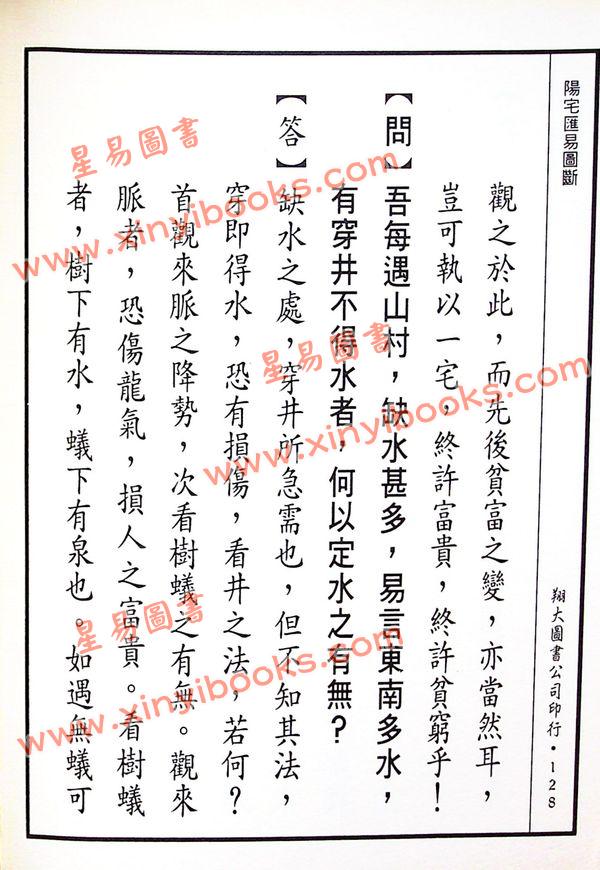 陽宅匯易圖斷
觀之於此，而先後貧富之變，亦當然耳，
豈可執以一宅，終許富貴，終許貧窮乎！
【問】吾每遇山村，缺水甚多，易言東南多水，
有穿井不得水者，何以定水之有無？
【答】缺水之處，穿井所急需也，但不知其法，
穿即得水，恐有損傷，看井之法，若何？
首觀來脈之降勢，次看樹蟻之有無。觀來
脈者，恐傷龍氣，損人之富貴。看樹蟻
者，樹下有水，蟻下有泉也。如遇無蟻可
翔大圖書公司印行•128
星易圖書
www.xinyibooks.com
星易圖書
www.xinyibooks.com
星易圖書
www.xinyibooks.com